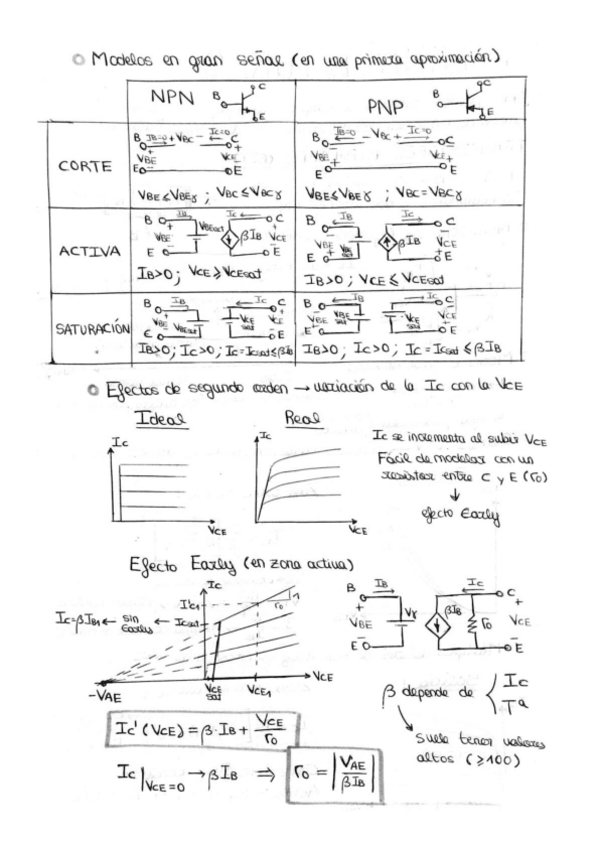 Modelos en gran señal (en una primera aproximación)
NPN B C E
PNP B C E
CORTE
B IB=0 + VBC - IC=0 C
+ VBE - VCE +
E E
VBE ≤ VBEγ ; VBC ≤ VBCγ
B IB=0 - VBC + IC=0 C
VBE + VCE +
E E
VBE ≤ VBEγ ; VBC = VBCγ
ACTIVA
B IB VBEsat IC C
+ VBE - βIB + VCE -
E E
IB>0 ; VCE ≥ VCEsat
B IB IC C
VBE + VBE sat βIB VCE +
E E
IB>0 ; VCE ≤ VCEsat
SATURACIÓN
B IB IC C
+ VBE - VBEsat VCE sat + VCE -
E E
IB>0 ; IC>0 ; IC = ICsat ≤ βIB
B IB IC C
VBE + VBE sat VCE sat VCE
E E
IB>0 ; IC>0 ; IC = ICsat ≤ βIB
Efectos de segundo orden → variación de la IC con la VCE
Ideal Real
IC VCE
IC VCE
IC se incrementa al subir VCE
Fácil de modelar con un
resistor entre C y E (r0)
↓
efecto Early
Efecto Early (en zona activa)
IC
I'C1 1 r0
IC=βIB1 ← sin Early ← ICsat
-VAE VCE sat VCE1 VCE
B IB IC C
+ VBE - Vγ βIB r0 + VCE -
E E
β depende de { IC
Tª
suele tener valores
altos (≥100)
IC'(VCE) = β·IB + VCE/r0
IC|VCE=0 → βIB ⇒ r0 = |VAE/βIB|